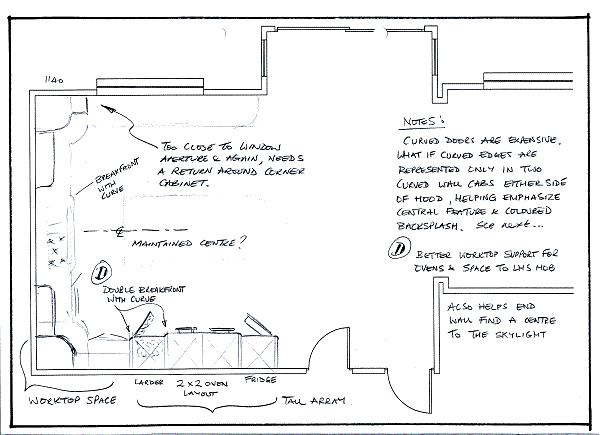 1140
TOO CLOSE TO WINDOW
APERTURE & AGAIN, NEEDS
A RETURN AROUND CORNER
CABINET.
BREAKFRONT
WITH
CURVE
MAINTAINED CENTRE?
D
DOUBLE BREAKFRONT
WITH CURVE
LARDER
2 x 2 OVEN
LAYOUT
FRIDGE
WORKTOP SPACE
TALL ARRAY.
NOTES:
CURVED DOORS ARE EXPENSIVE.
WHAT IF CURVED EDGES ARE
REPRESENTED ONLY IN TWO
CURVED WALL CABS EITHER SIDE
OF HOOD, HELPING EMPHASIZE
CENTRAL FEATURE & COLOURED
BACKSPLASH. See next...
D
BETTER WORKTOP SUPPORT FOR
OVENS & SPACE TO LHS HOB
ALSO HELPS END
WALL FIND A CENTRE
TO THE SKYLIGHT